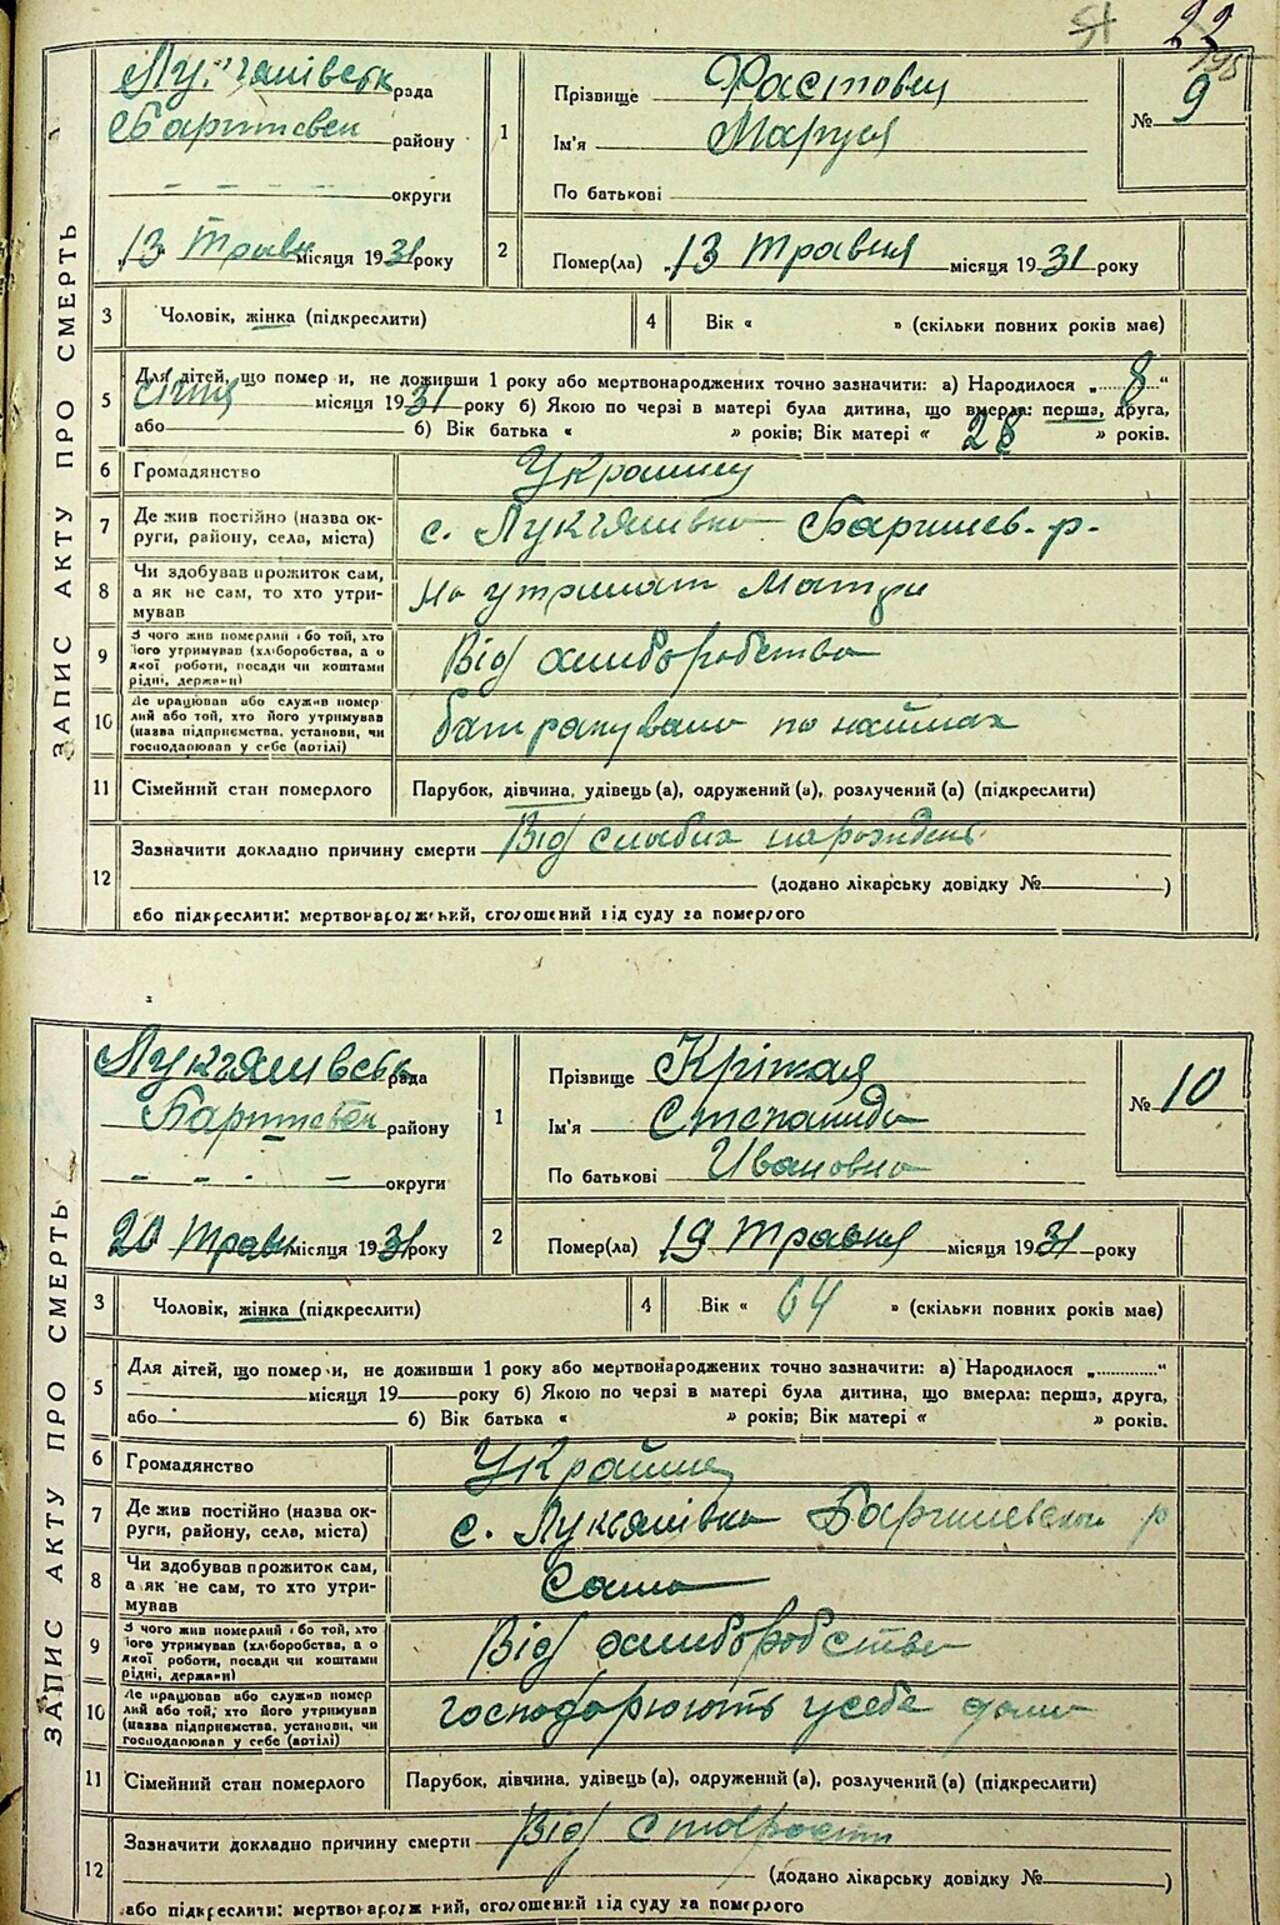 51 22
195
ЗАПИС АКТУ ПРО СМЕРТЬ
Лук'янівськ рада
Баришевськ району
— — — — округи
„13 Травн місяця 1931 року
1
Прізвище Фастовец
Ім'я Маруся
По батькові
№ 9
2
Помер(ла) „13 травня місяця 1931 року
3 Чоловік, жінка (підкреслити)
4 Вік « » (скільки повних років має)
5
Для дітей, що помер и, не доживши 1 року або мертвонароджених точно зазначити: а) Народилося „ 8 “
січня місяця 1931 року б) Якою по черзі в матері була дитина, що вмерла: перша, друга,
або б) Вік батька « » років; Вік матері « 28 » років.
6 Громадянство Украинец
7 Де жив постійно (назва ок-
руги, району, села, міста) с. Лук'янівка Баришев. р.
8 Чи здобував прожиток сам,
а як не сам, то хто утри-
мував На утримат Матери
9 З чого жив померлий або той, хто
його утримував (хліборобства, а о
якої роботи, посади чи коштами
рідні, держави) Від хліборобства
10 Де працював або служив помер
лий або той, хто його утримував
(назва підприємства, установи, чи
господарював у себе (артілі) батракувала по наймах
11 Сімейний стан померлого Парубок, дівчина, удівець (а), одружений (а), розлучений (а) (підкреслити)
12
Зазначити докладно причину смерти Від слабих народжень
(додано лікарську довідку № )
або підкреслити: мертвонароджений, оголошений від суду за померлого
ЗАПИС АКТУ ПРО СМЕРТЬ
Лук'янівськ рада
Баришевськ району
— — — — округи
20 Травн місяця 1931 року
1
Прізвище Крітая
Ім'я Степанида
По батькові Ивановна
№ 10
2
Помер(ла) 19 травня місяця 1931 року
3 Чоловік, жінка (підкреслити)
4 Вік « 64 » (скільки повних років має)
5
Для дітей, що помер и, не доживши 1 року або мертвонароджених точно зазначити: а) Народилося „ “
місяця 19 року б) Якою по черзі в матері була дитина, що вмерла: перша, друга,
або б) Вік батька « » років; Вік матері « » років.
6 Громадянство Украйнец
7 Де жив постійно (назва ок-
руги, району, села, міста) с. Лук'янівка Баришевского р
8 Чи здобував прожиток сам,
а як не сам, то хто утри-
мував Сама
9 З чого жив померлий або той, хто
його утримував (хліборобства, а о
якої роботи, посади чи коштами
рідні, держави) Від хліборобства
10 Де працював або служив помер
лий або той, хто його утримував
(назва підприємства, установи, чи
господарював у себе (артілі) господарюють у себе дома
11 Сімейний стан померлого Парубок, дівчина, удівець (а), одружений (а), розлучений (а) (підкреслити)
12
Зазначити докладно причину смерти Від старости
(додано лікарську довідку № )
або підкреслити: мертвонароджений, оголошений від суду за померлого